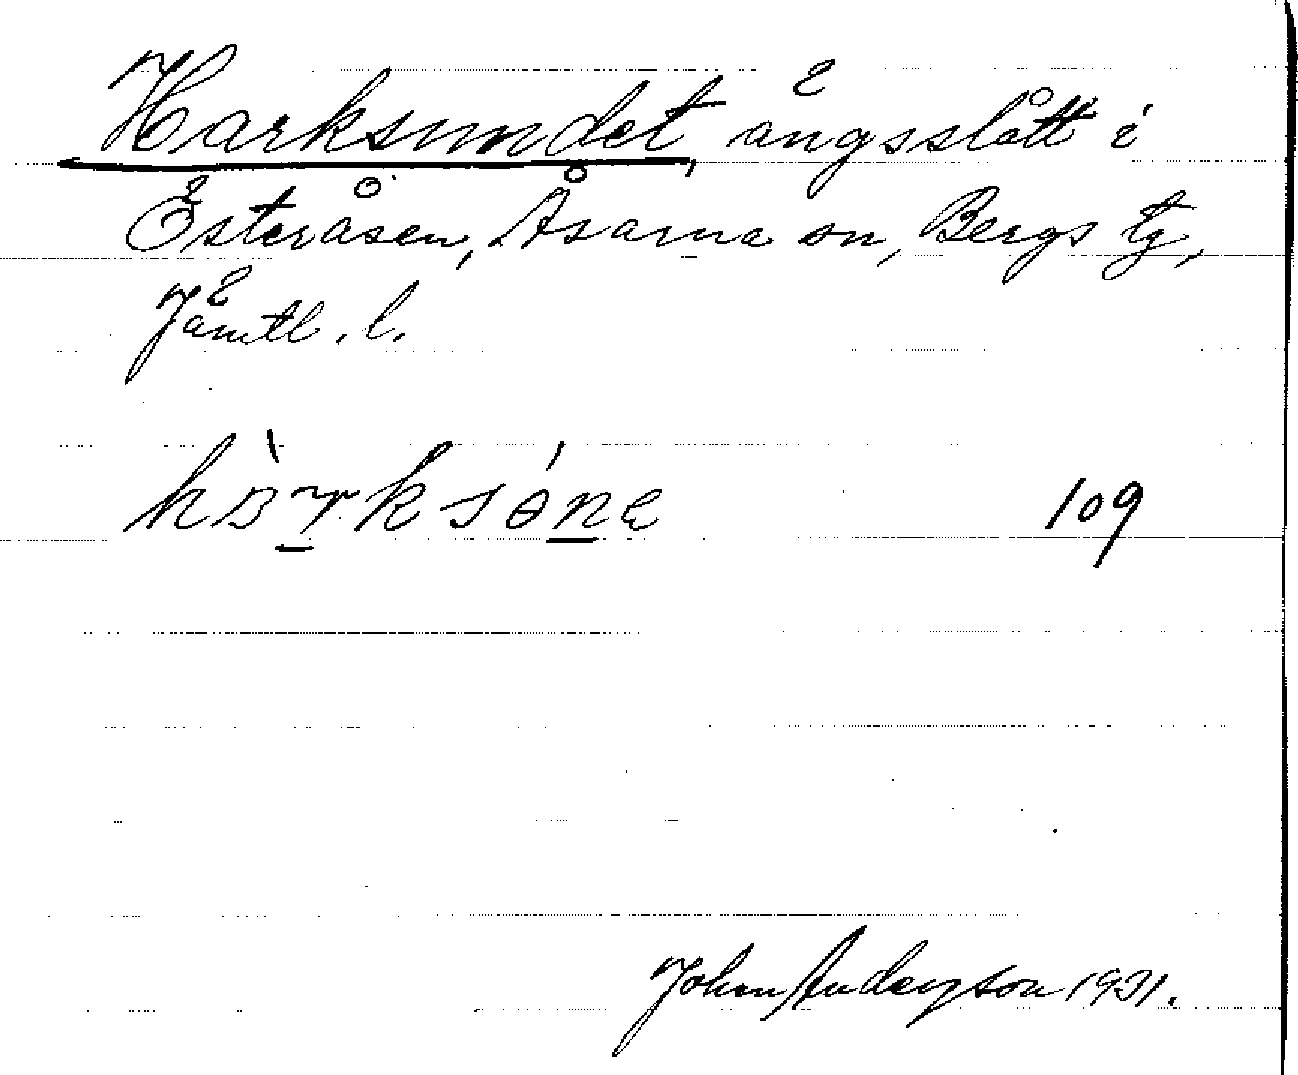 Harksundet, ängsslått i
Österåsen, Åsarna sn, Bergs tg,
Jämtl. l.
109
John Anderson 1931.